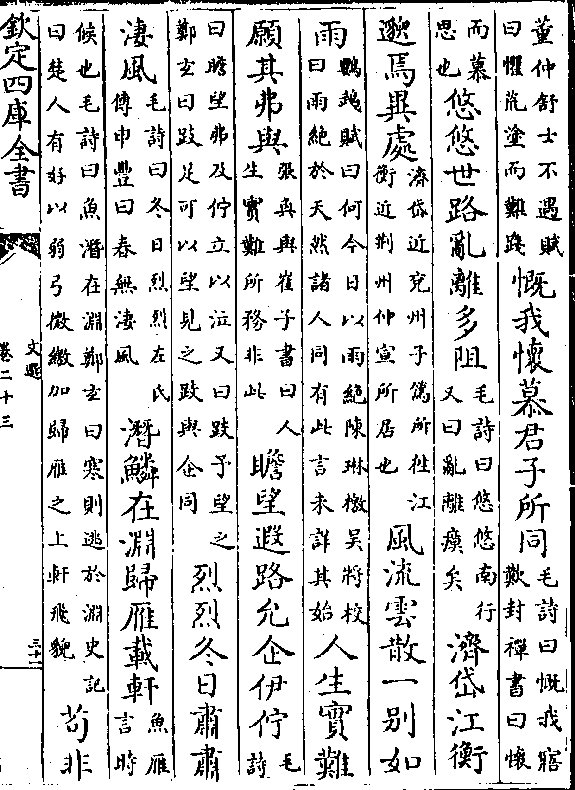 董仲舒士不遇賦曰懼荒塗而難踐慨我懷慕君子所同毛詩曰慨我寤歎封禪書曰懷
而慕思也悠悠世路亂離多阻毛詩曰悠悠南行又曰亂離瘼矣濟岱江衡
邈焉異處濟岱近兗州子篤所徃江衡近荆州仲宣所居也風流雲散一别如
雨鸚鵡賦曰何今日以雨絶陳琳檄吳將校曰雨絶於天然諸人同有此言未詳其始人生實難
願其弗與張奐與崔子書曰人生實難所務非此瞻望遐路允企伊佇毛詩
曰瞻望弗及佇立以泣又曰跂予望之鄭玄曰跂足可以望見之跂與企同烈烈冬日肅肅
淒風毛詩曰冬日烈烈左氏傳申豐曰春無淒風潛鱗在淵歸雁載軒魚雁言時
候也毛詩曰魚潛在淵鄭玄曰寒則逃於淵史記曰楚人有好以弱弓微繳加歸雁之上軒飛貌苟非
欽定四庫全書
文選
卷二十三